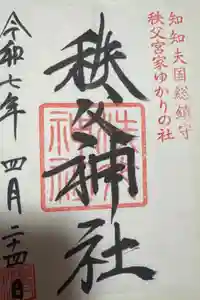 知知夫国総鎮守
秩父宮家ゆかりの社
秩父神社
令和七年 四月二十四日